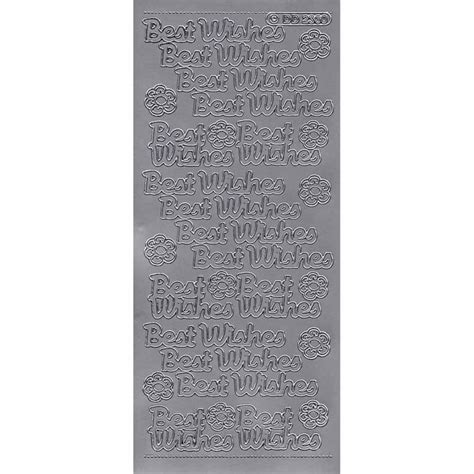 © DD
Best Wishes
Best Wishes
Best Wishes
Best Wishes
Best Best
Wishes Wishes
Best Wishes
Best Wishes
Best Wishes
Best Wishes
Best Best
Wishes Wishes
Best Wishes
Best Wishes
Best Wishes
Best Best
Wishes Wishes